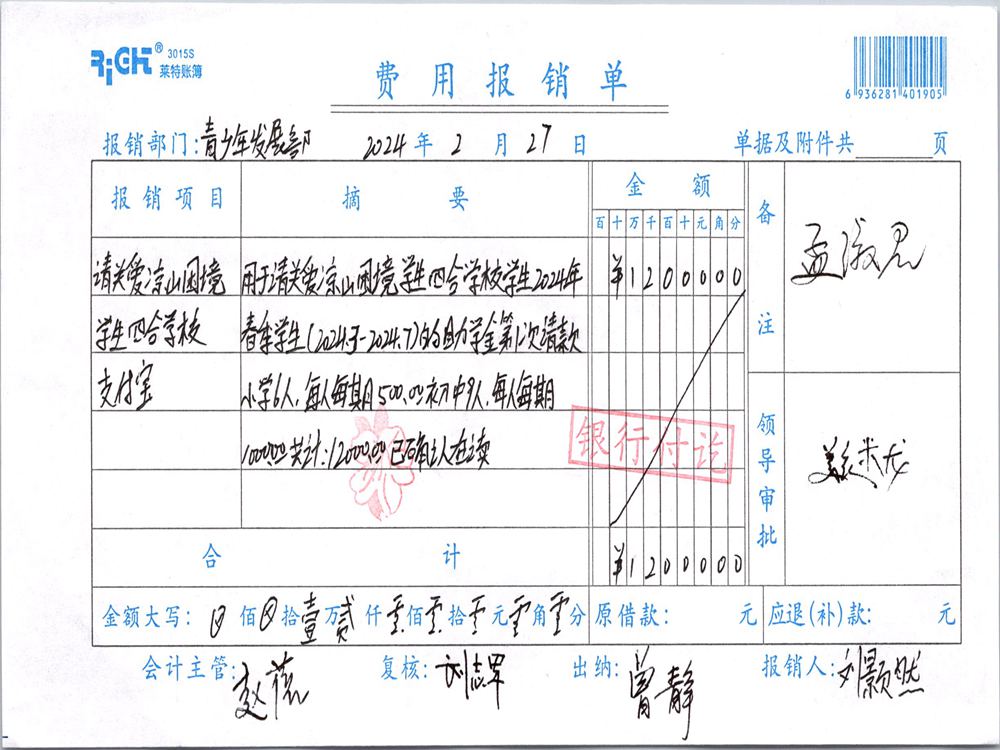 RiGHT® 3015S
莱特账簿
费用报销单
6 936281 401905
报销部门:青少年发展部 2024年2月27日 单据及附件共 页
报销项目 摘要 金额 备注
百十万千百十元角分
请关爱凉山困境 用于请关爱凉山困境学生四合学校学生2024年 ¥1200000
学生四合学校 春季学生(2024.3-2024.7)的助学金第1次请款
支付宝 小学6人,每人每期500.00初中9人,每人每期
1000.00共计:12000.00已确认在读
银行付讫
孟淑君
领导审批
合计 ¥1200000
金额大写: 佰 拾壹万贰仟零佰零拾零元零角零分 原借款: 元 应退(补)款: 元
会计主管: 复核:刘志军 出纳:曾静 报销人:刘颢然